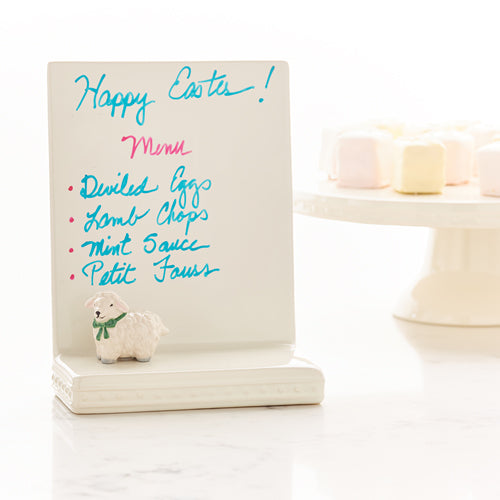 Happy Easter!
Menu
• Deviled Eggs
• Lamb Chops
• Mint Sauce
• Petit Fours